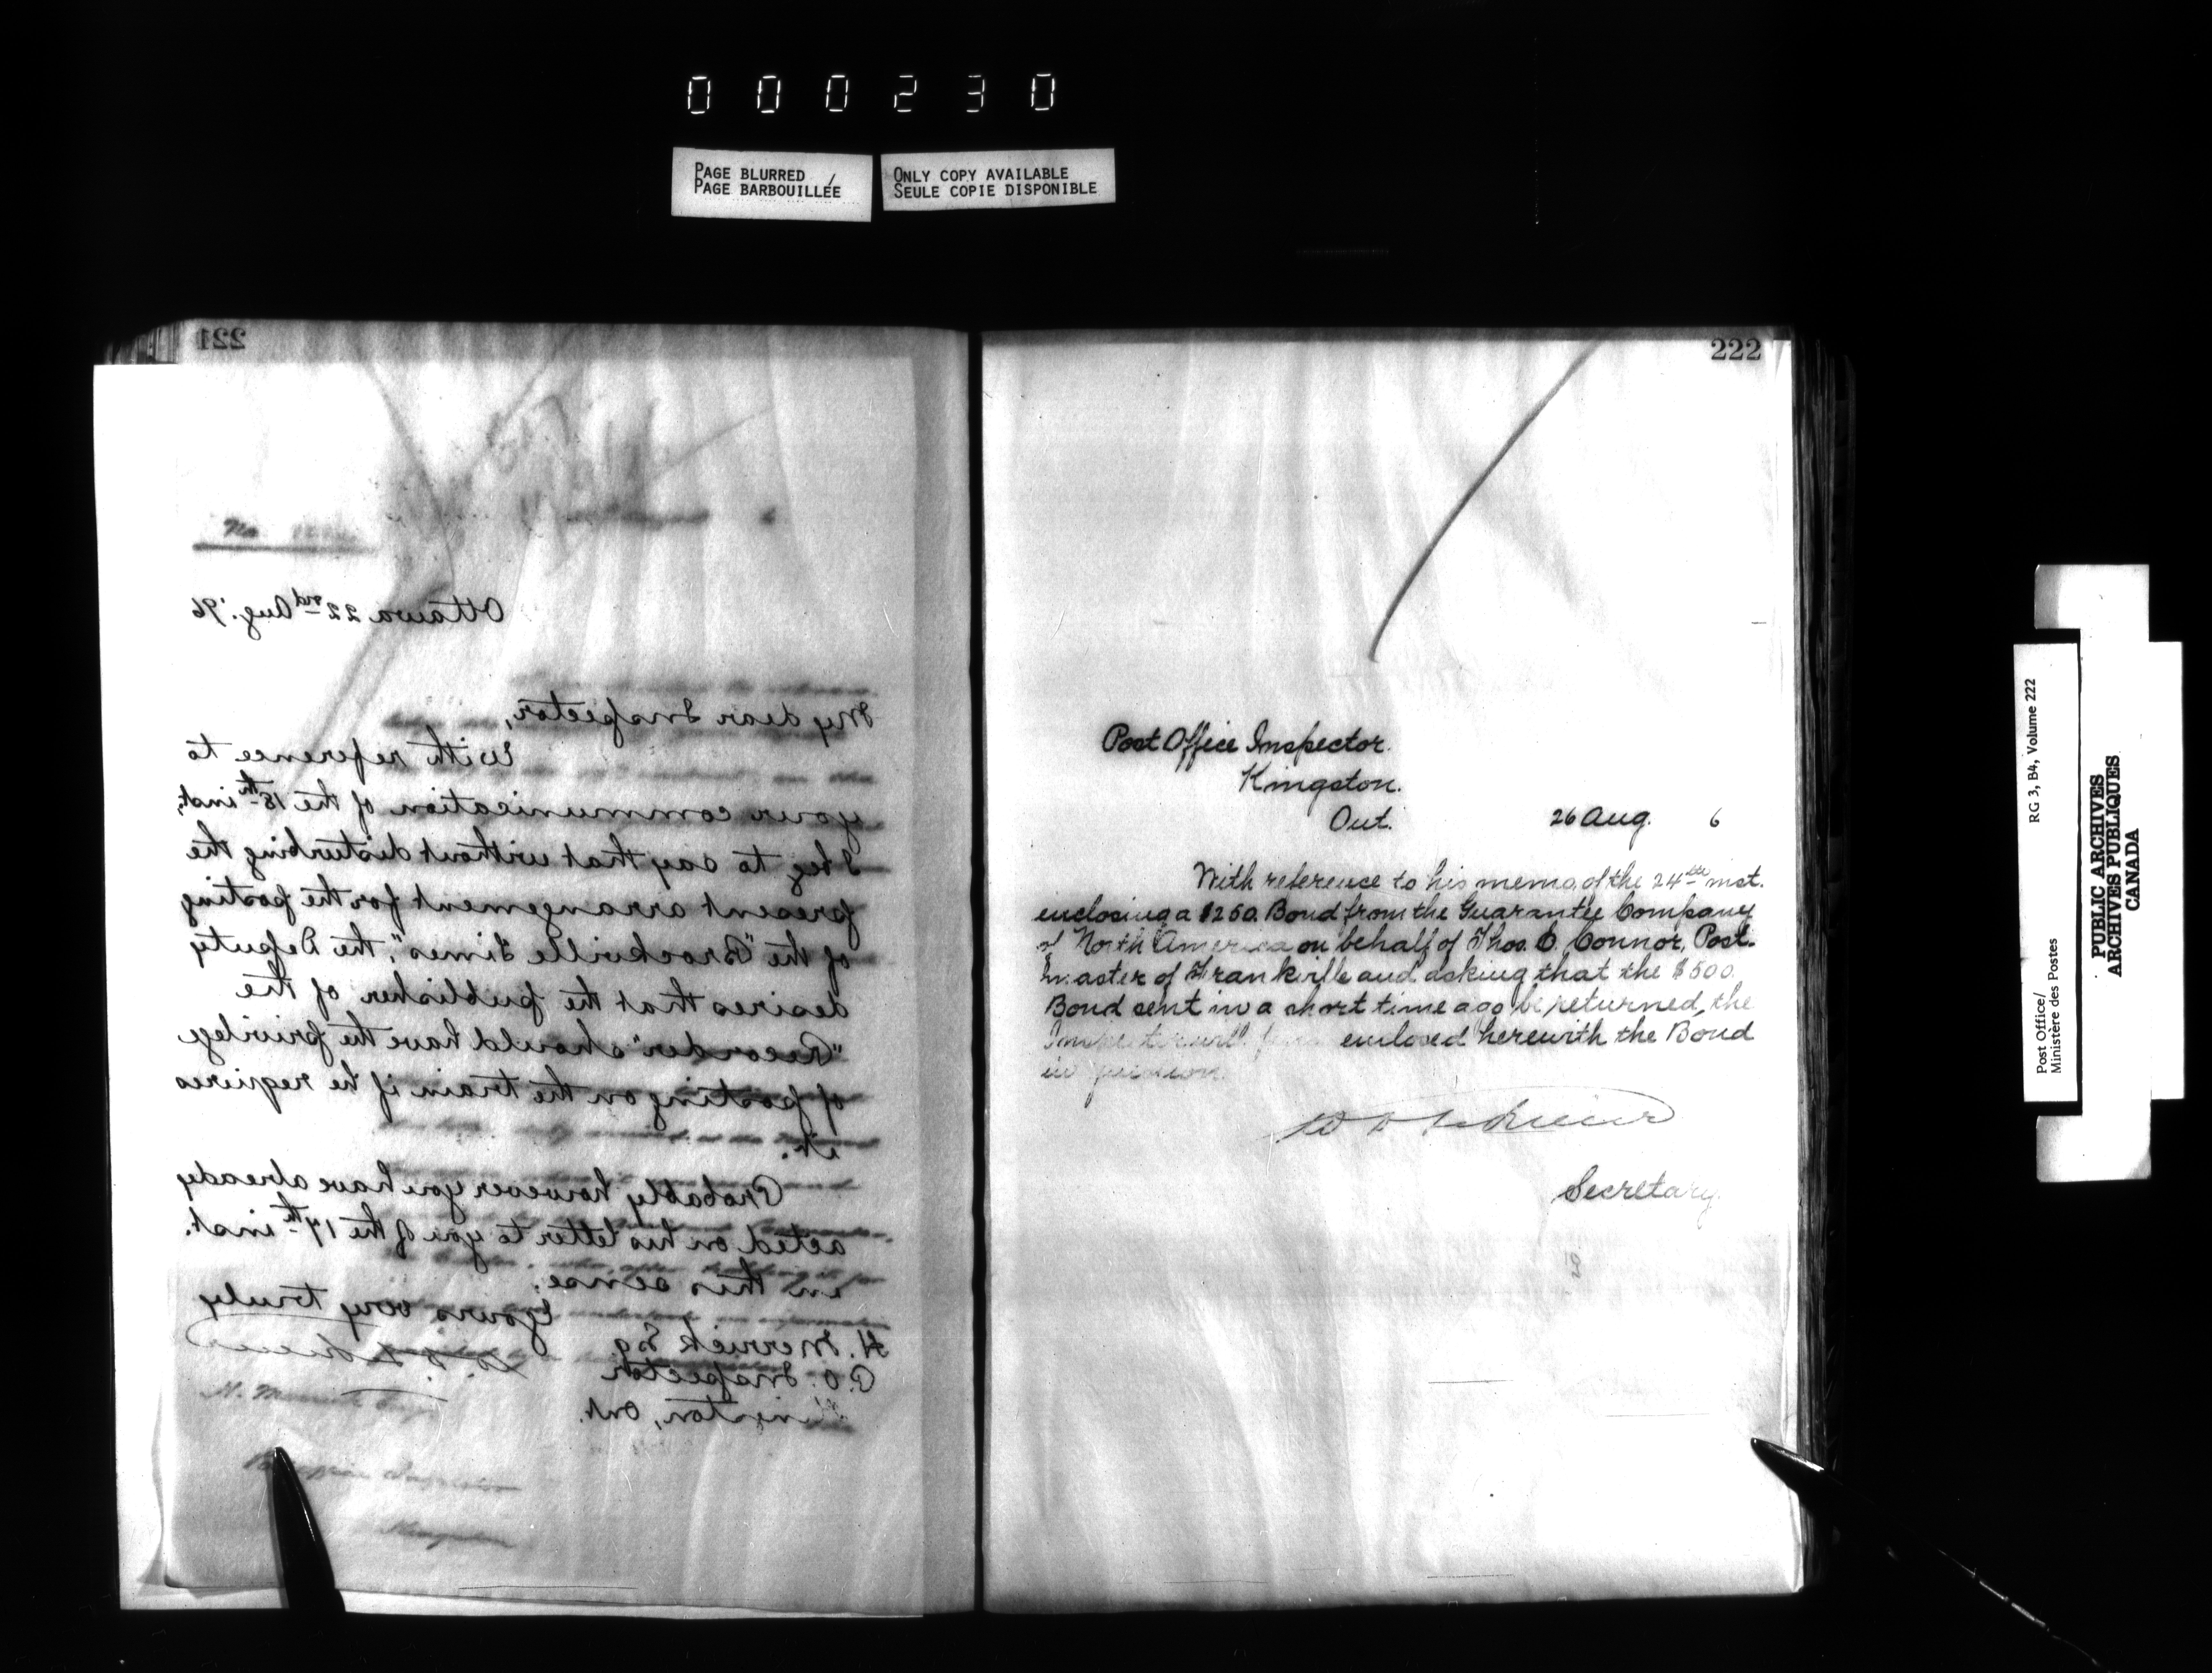 000230
PAGE BLURRED
PAGE BARBOUILLÉE
ONLY COPY AVAILABLE
SEULE COPIE DISPONIBLE
221
No
Ottawa 22nd Aug. '96
My dear Inspector,
With reference to
your communication of the 18th inst.
I beg to say that without disturbing the
present arrangement for the posting
of the "Brockville Times", the Deputy
desires that the publisher of the
"Recorder" should have the privilege
of posting on the train if he requires
it.
Probably however you have already
acted on his letter to you of the 17th inst.
in this sense.
Yours very truly
H. Merrick Esq.
P.O. Inspector
Kingston, Ont.
222
Post Office Inspector.
Kingston.
Ont. 26 Aug. 6
With reference to his memo, of the 24th inst.
enclosing a $250. Bond from the Guarantee Company
of North America on behalf of Thos. C. Connor, Post-
master of Frankville and asking that the $500.
Bond sent in a short time ago be returned, the
Inspector will find enclosed herewith the Bond
in question.
Secretary.
Post Office/
Ministère des Postes
RG 3, B4, Volume 222
PUBLIC ARCHIVES
ARCHIVES PUBLIQUES
CANADA